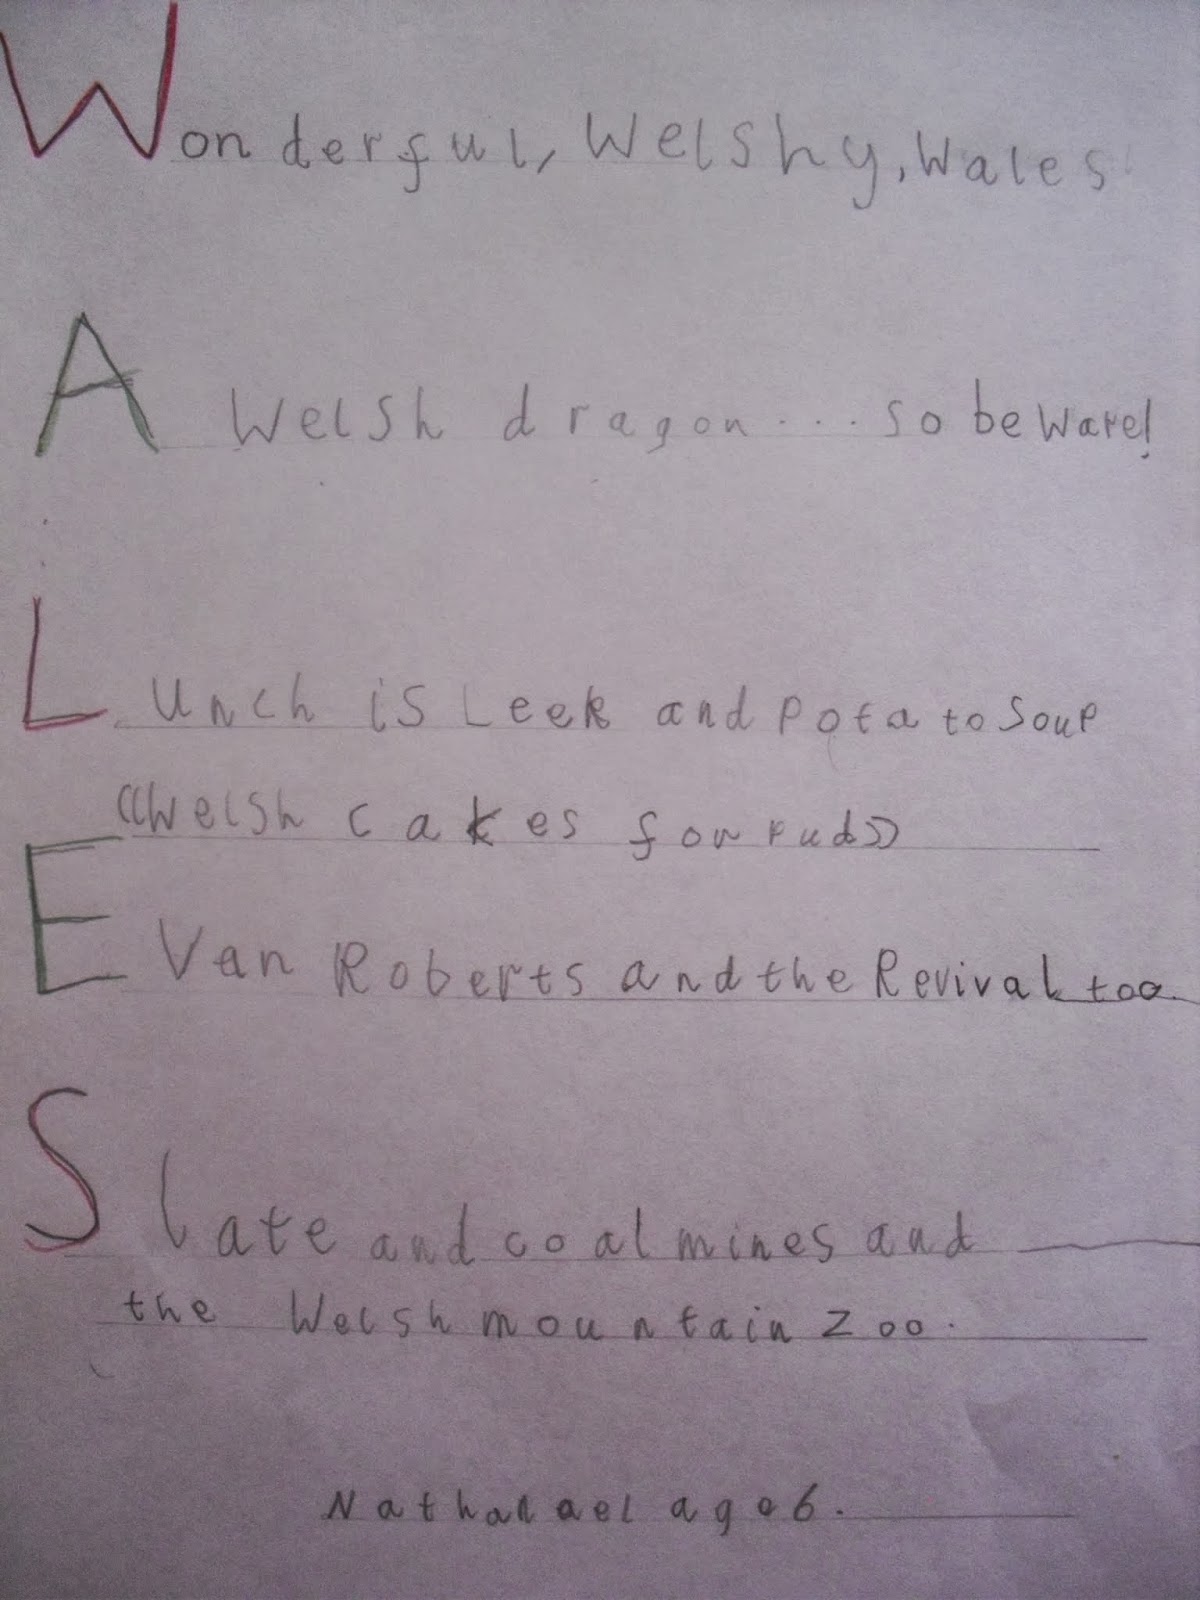 Wonderful, Welshy, Wales
A Welsh dragon... so beware!
Lunch is Leek and Potato Soup
((Welsh cakes for Pud))
Evan Roberts and the Revival too.
Slate and coal mines and
the Welsh mountain Zoo.
Nathanael age 6.